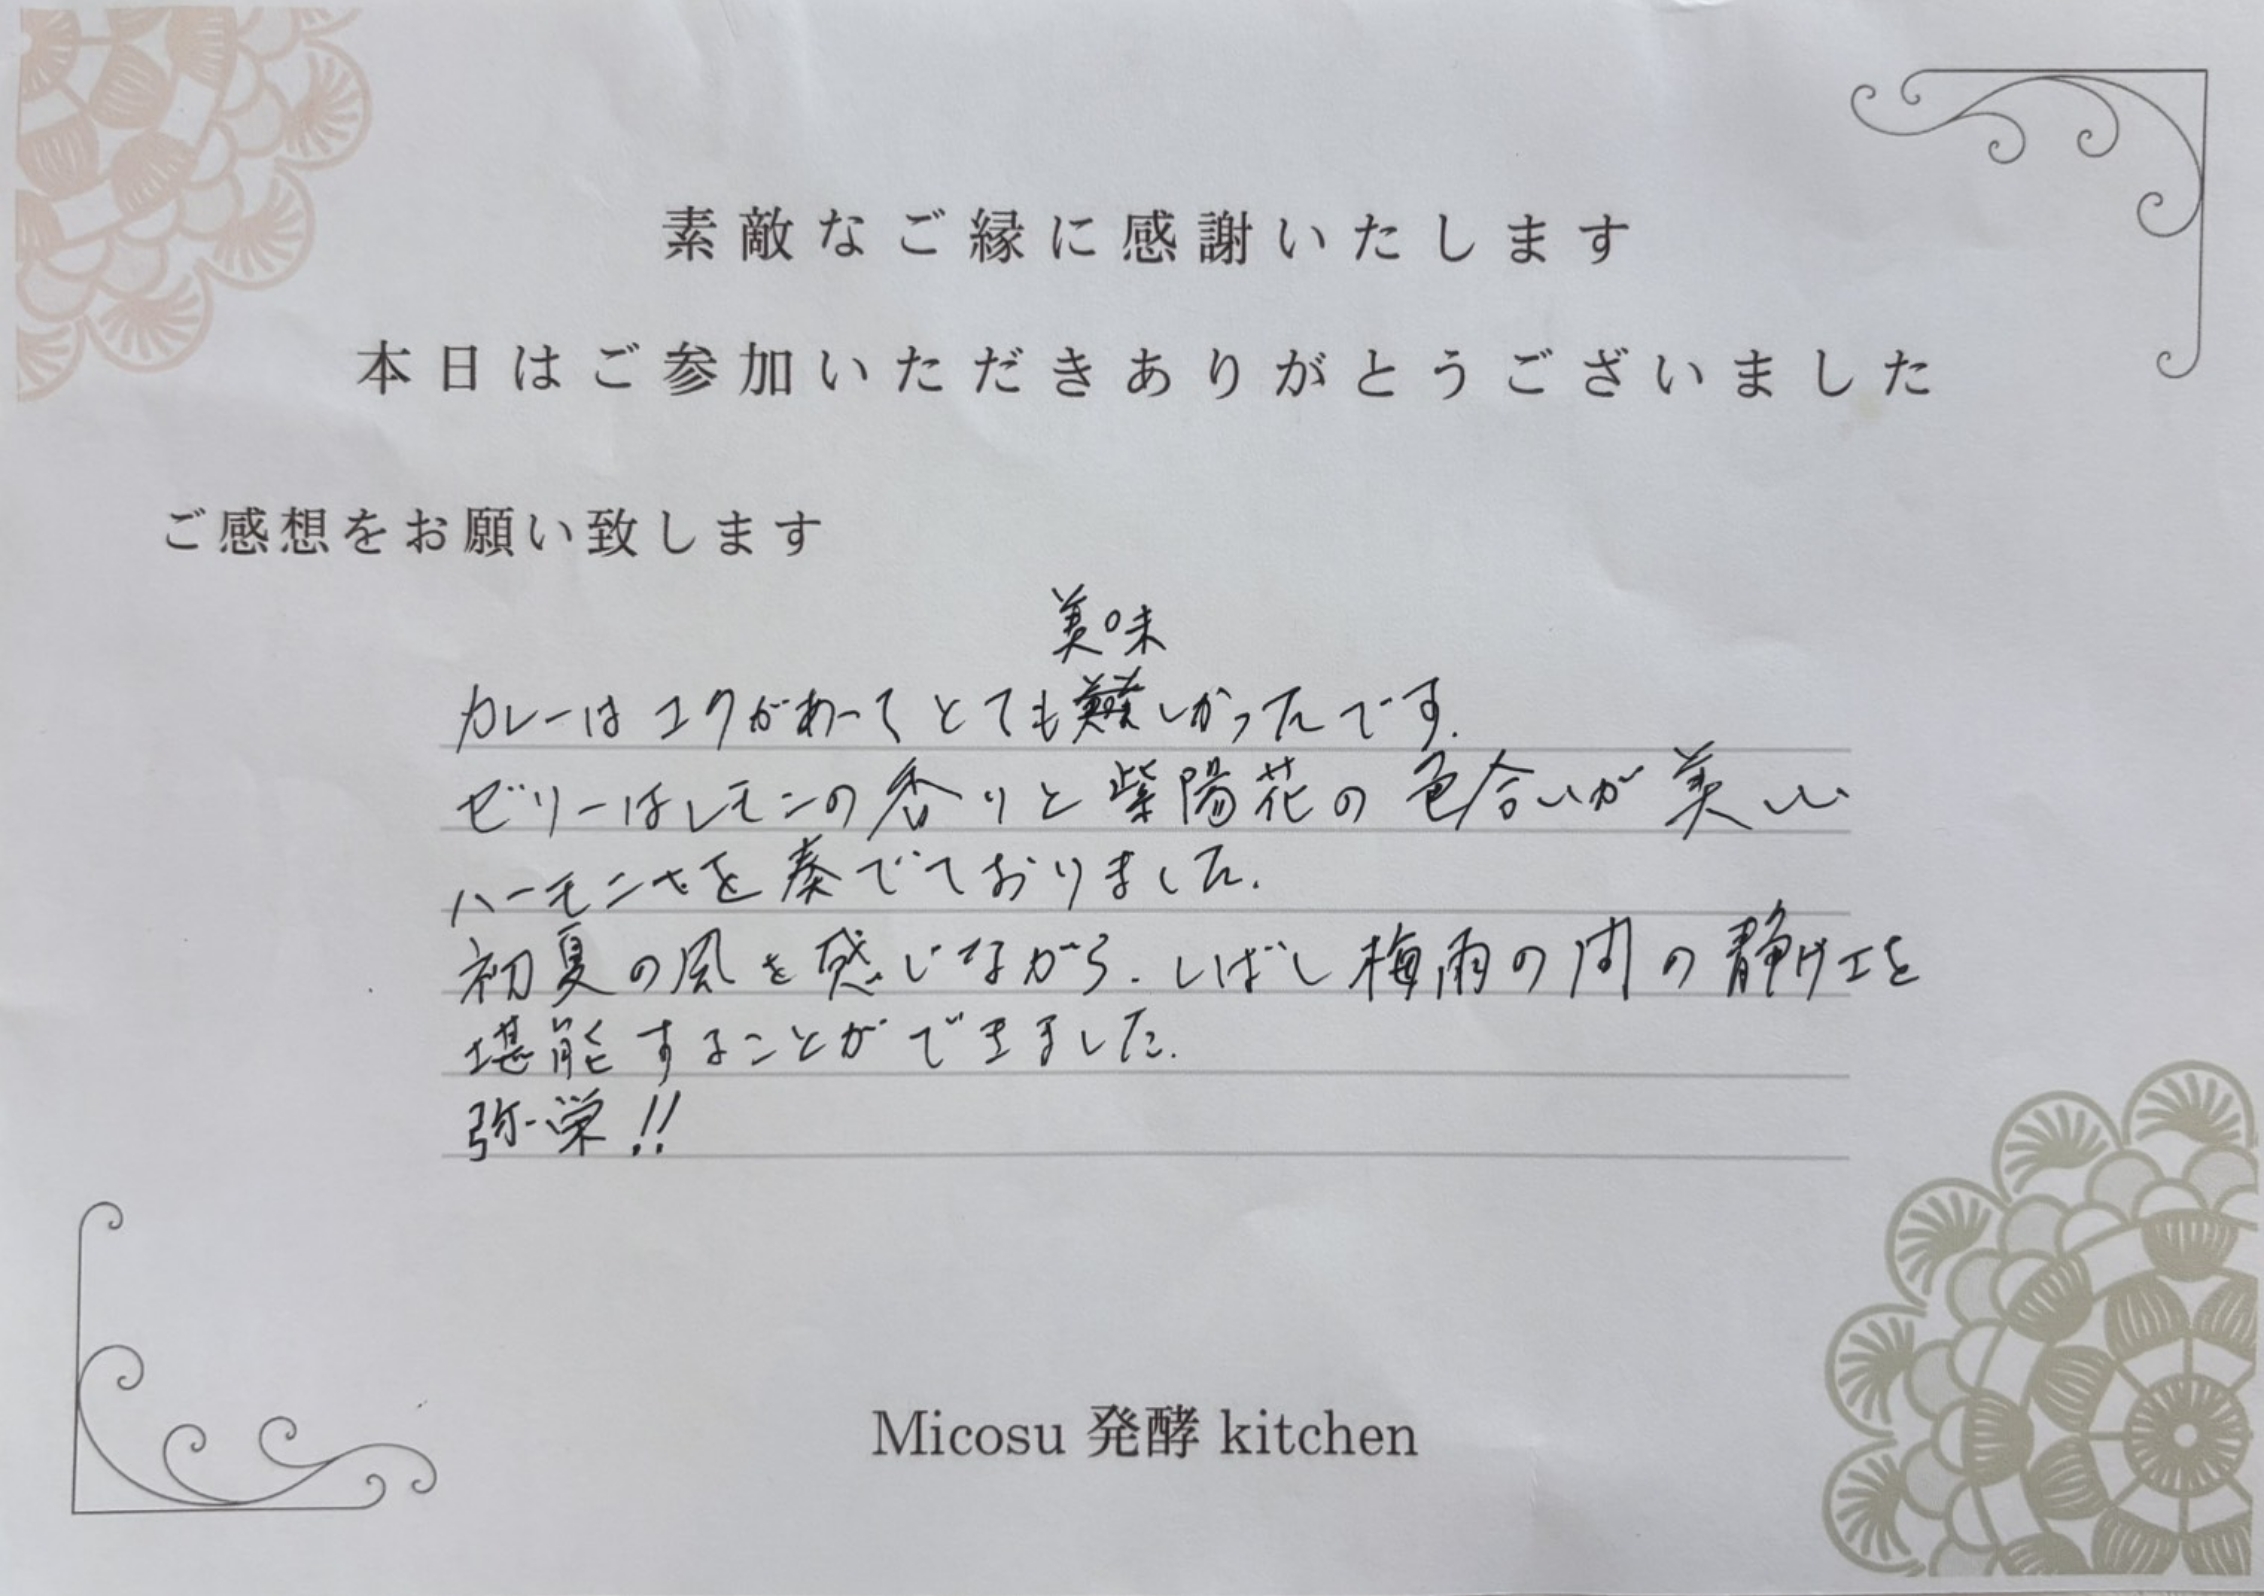 素敵なご縁に感謝いたします
本日はご参加いただきありがとうございました
ご感想をお願い致します
美味
カレーはコクがあってとてもしかったです.
ゼリーはレモンの香りと紫陽花の色合いが美しい
ハーモニーを奏でておりました.
初夏の風を感じながら.しばし梅雨の間の静けさを
堪能することができました.
弥栄!!
Micosu 発酵 kitchen